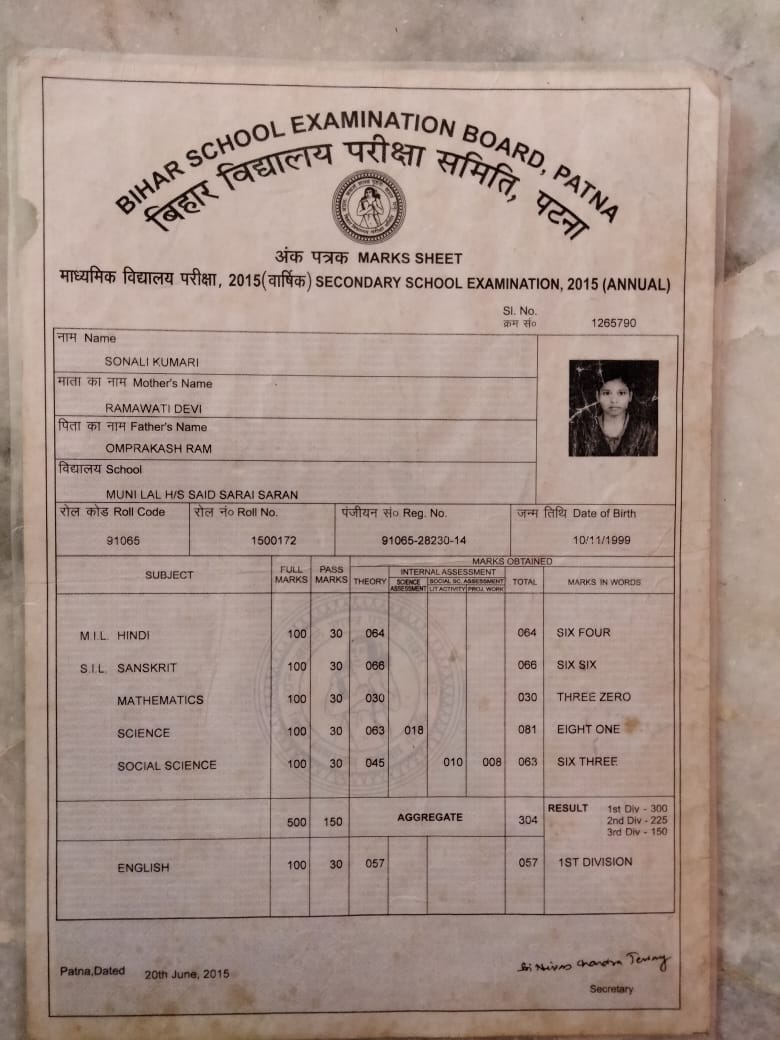 BIHAR SCHOOL EXAMINATION BOARD, PATNA
बिहार विद्यालय परीक्षा समिति, पटना
अंक पत्रक MARKS SHEET
माध्यमिक विद्यालय परीक्षा, 2015(वार्षिक) SECONDARY SCHOOL EXAMINATION, 2015 (ANNUAL)
Sl. No.
क्रम सं० 1265790
नाम Name
SONALI KUMARI
माता का नाम Mother's Name
RAMAWATI DEVI
पिता का नाम Father's Name
OMPRAKASH RAM
विद्यालय School
MUNI LAL H/S SAID SARAI SARAN
रोल कोड Roll Code रोल नं० Roll No. पंजीयन सं० Reg. No. जन्म तिथि Date of Birth
91065 1500172 91065-28230-14 10/11/1999
SUBJECT FULL MARKS PASS MARKS MARKS OBTAINED
THEORY INTERNAL ASSESSMENT TOTAL MARKS IN WORDS
SCIENCE ASSESSMENT SOCIAL SC. ASSESSMENT
LIT ACTIVITY PROJ. WORK
M.I.L. HINDI 100 30 064 064 SIX FOUR
S.I.L. SANSKRIT 100 30 066 066 SIX SIX
MATHEMATICS 100 30 030 030 THREE ZERO
SCIENCE 100 30 063 018 081 EIGHT ONE
SOCIAL SCIENCE 100 30 045 010 008 063 SIX THREE
500 150 AGGREGATE 304 RESULT 1st Div - 300
2nd Div - 225
3rd Div - 150
ENGLISH 100 30 057 057 1ST DIVISION
Patna,Dated 20th June, 2015
Secretary